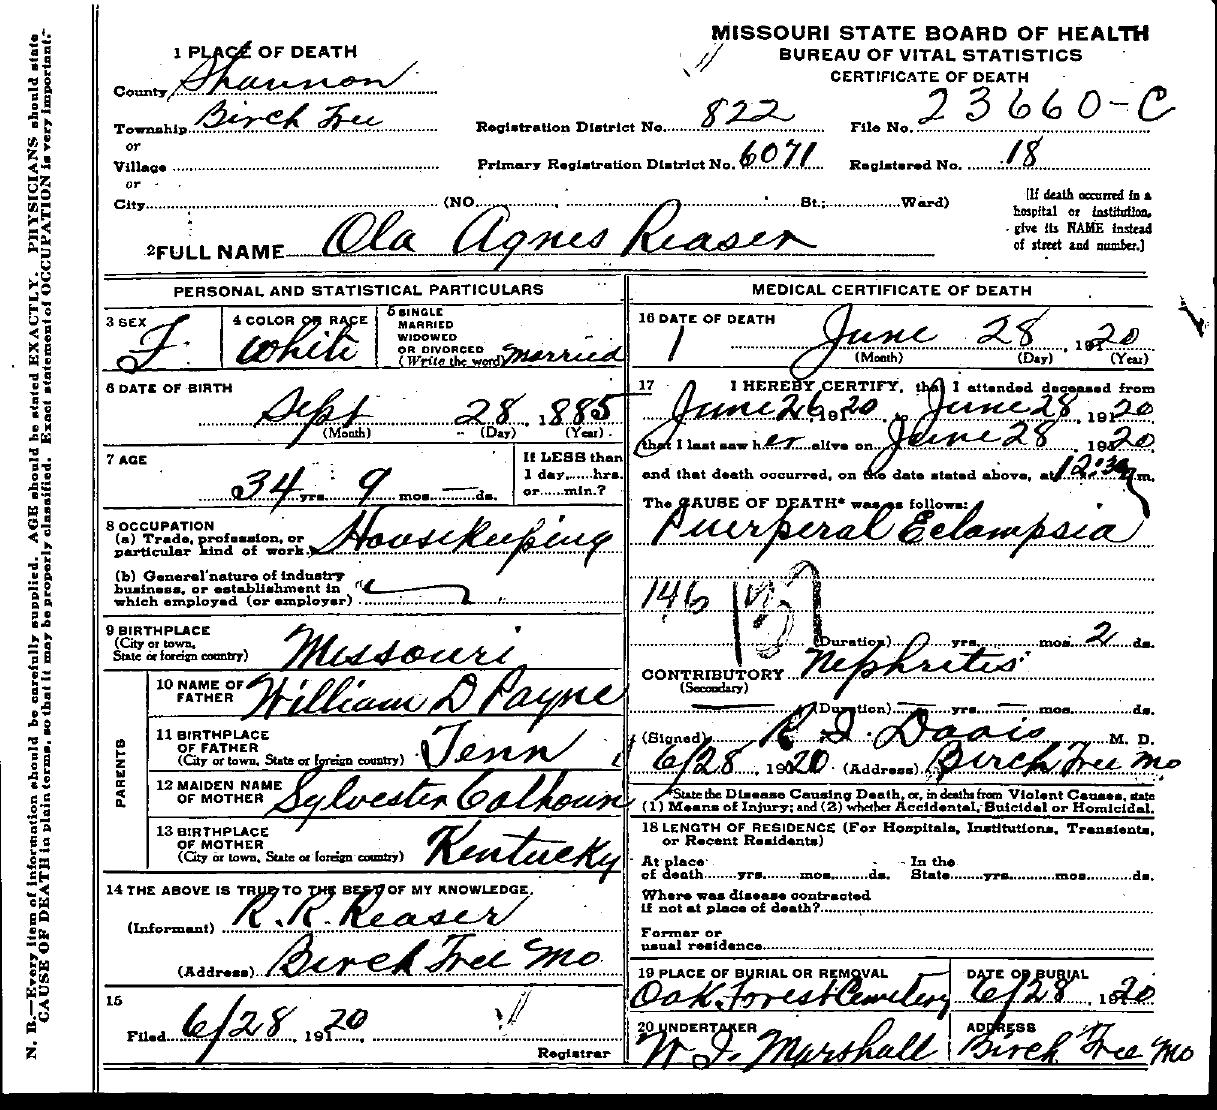 MISSOURI STATE BOARD OF HEALTH
BUREAU OF VITAL STATISTICS
CERTIFICATE OF DEATH
1 PLACE OF DEATH
County Shannon
Township Birch Tree
or
Village
or
City (NO. , St.; Ward)
Registration District No. 822
File No. 23660-C
Primary Registration District No. 6071
Registered No. 18
[If death occurred in a
hospital or institution,
give its NAME instead
of street and number.]
2 FULL NAME Ola Agnes Reaser
PERSONAL AND STATISTICAL PARTICULARS
3 SEX F.
4 COLOR OR RACE White
5 SINGLE
MARRIED
WIDOWED
OR DIVORCED
(Write the word) Married
6 DATE OF BIRTH
Sept 28, 1885
(Month) (Day) (Year)
7 AGE
34 yrs. 9 mos. — ds.
If LESS than
1 day, hrs.
or min.?
8 OCCUPATION
(a) Trade, profession, or
particular kind of work Housekeeping
(b) General nature of industry
business, or establishment in
which employed (or employer)
9 BIRTHPLACE
(City or town,
State or foreign country) Missouri
PARENTS
10 NAME OF
FATHER William D Payne
11 BIRTHPLACE
OF FATHER
(City or town, State or foreign country) Tenn
12 MAIDEN NAME
OF MOTHER Sylvester Calhoun
13 BIRTHPLACE
OF MOTHER
(City or town, State or foreign country) Kentucky
14 THE ABOVE IS TRUE TO THE BEST OF MY KNOWLEDGE.
(Informant) R. R. Reaser
(Address) Birch Tree Mo
15
Filed 6/28, 1920
Registrar
MEDICAL CERTIFICATE OF DEATH
16 DATE OF DEATH
June 28, 1920
(Month) (Day) (Year)
17 I HEREBY CERTIFY, that I attended deceased from
June 26, 1920 to June 28, 1920
that I last saw her alive on June 28 1920
and that death occurred, on the date stated above, at 12:30 m.
The CAUSE OF DEATH* was as follows:
Puerperal Eclampsia
146
(Duration) yrs. mos. 2 ds.
CONTRIBUTORY Nephritis
(Secondary)
(Duration) — yrs. — mos. ds.
(Signed) R. I. Davis M. D.
6/28, 1920 (Address) Birch Tree Mo
*State the Disease Causing Death, or, in deaths from Violent Causes, state
(1) Means of Injury; and (2) whether Accidental, Suicidal or Homicidal.
18 LENGTH OF RESIDENCE (For Hospitals, Institutions, Transients,
or Recent Residents)
At place In the
of death yrs. mos. ds. State yrs. mos. ds.
Where was disease contracted
if not at place of death?
Former or
usual residence
19 PLACE OF BURIAL OR REMOVAL
Oak Forest Cemetery
DATE OF BURIAL
6/28, 1920
20 UNDERTAKER
W. I. Marshall
ADDRESS
Birch Tree Mo
N. B.—Every item of information should be carefully supplied. AGE should be stated EXACTLY. PHYSICIANS should state
CAUSE OF DEATH in plain terms, so that it may be properly classified. Exact statement of OCCUPATION is very important.